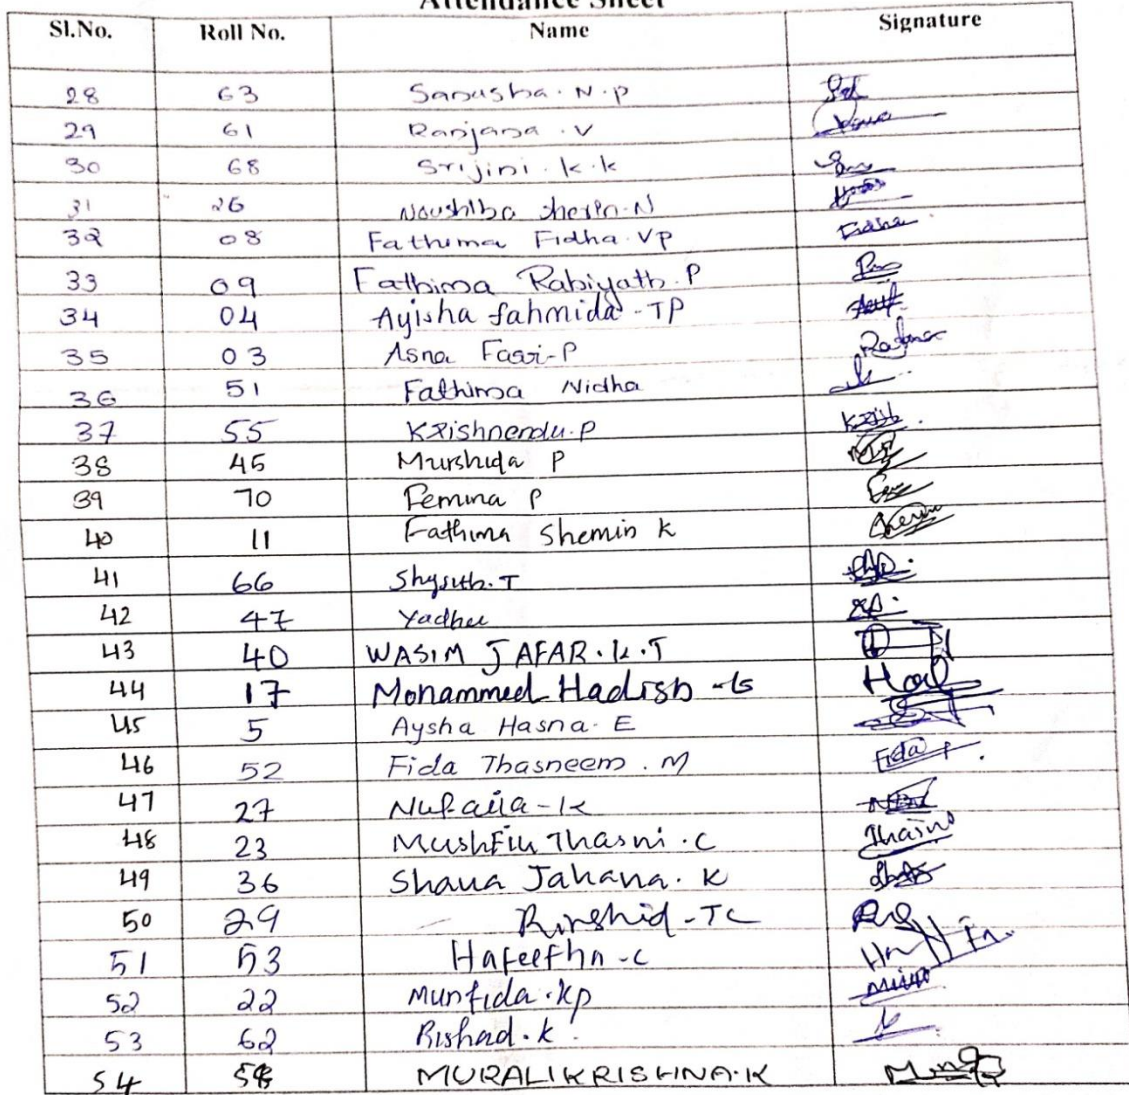 Attendance Sheet
Sl.No. Roll No. Name Signature
28 63 Sanusha. N. P
29 61 Ranjana. V
30 68 Srijini. K. K
31 26 Noushiba Sherin. N
32 08 Fathima Fidha. VP Fidha
33 09 Fathima Rabiyath. P
34 04 Ayisha fahmida - TP
35 03 Asna Fasri-P
36 51 Fathima Nidha
37 55 Krishnendu. P
38 45 Murshida P
39 70 Femina P
40 11 Fathima Shemin K
41 66 T
42 47 Yadhu
43 40 WASIM JAFAR. K. T
44 17 Mohammed Hadish
45 5 Aysha Hasna. E
46 52 Fida Thasneem. M Fida
47 27 K
48 23 Thasni. C
49 36 Jahana. K
50 29 Rinshid - TC
51 53 Hafeefha - C
52 22 Munfida. KP
53 62 Rishad. K.
54 MURALIKRISHNA. K